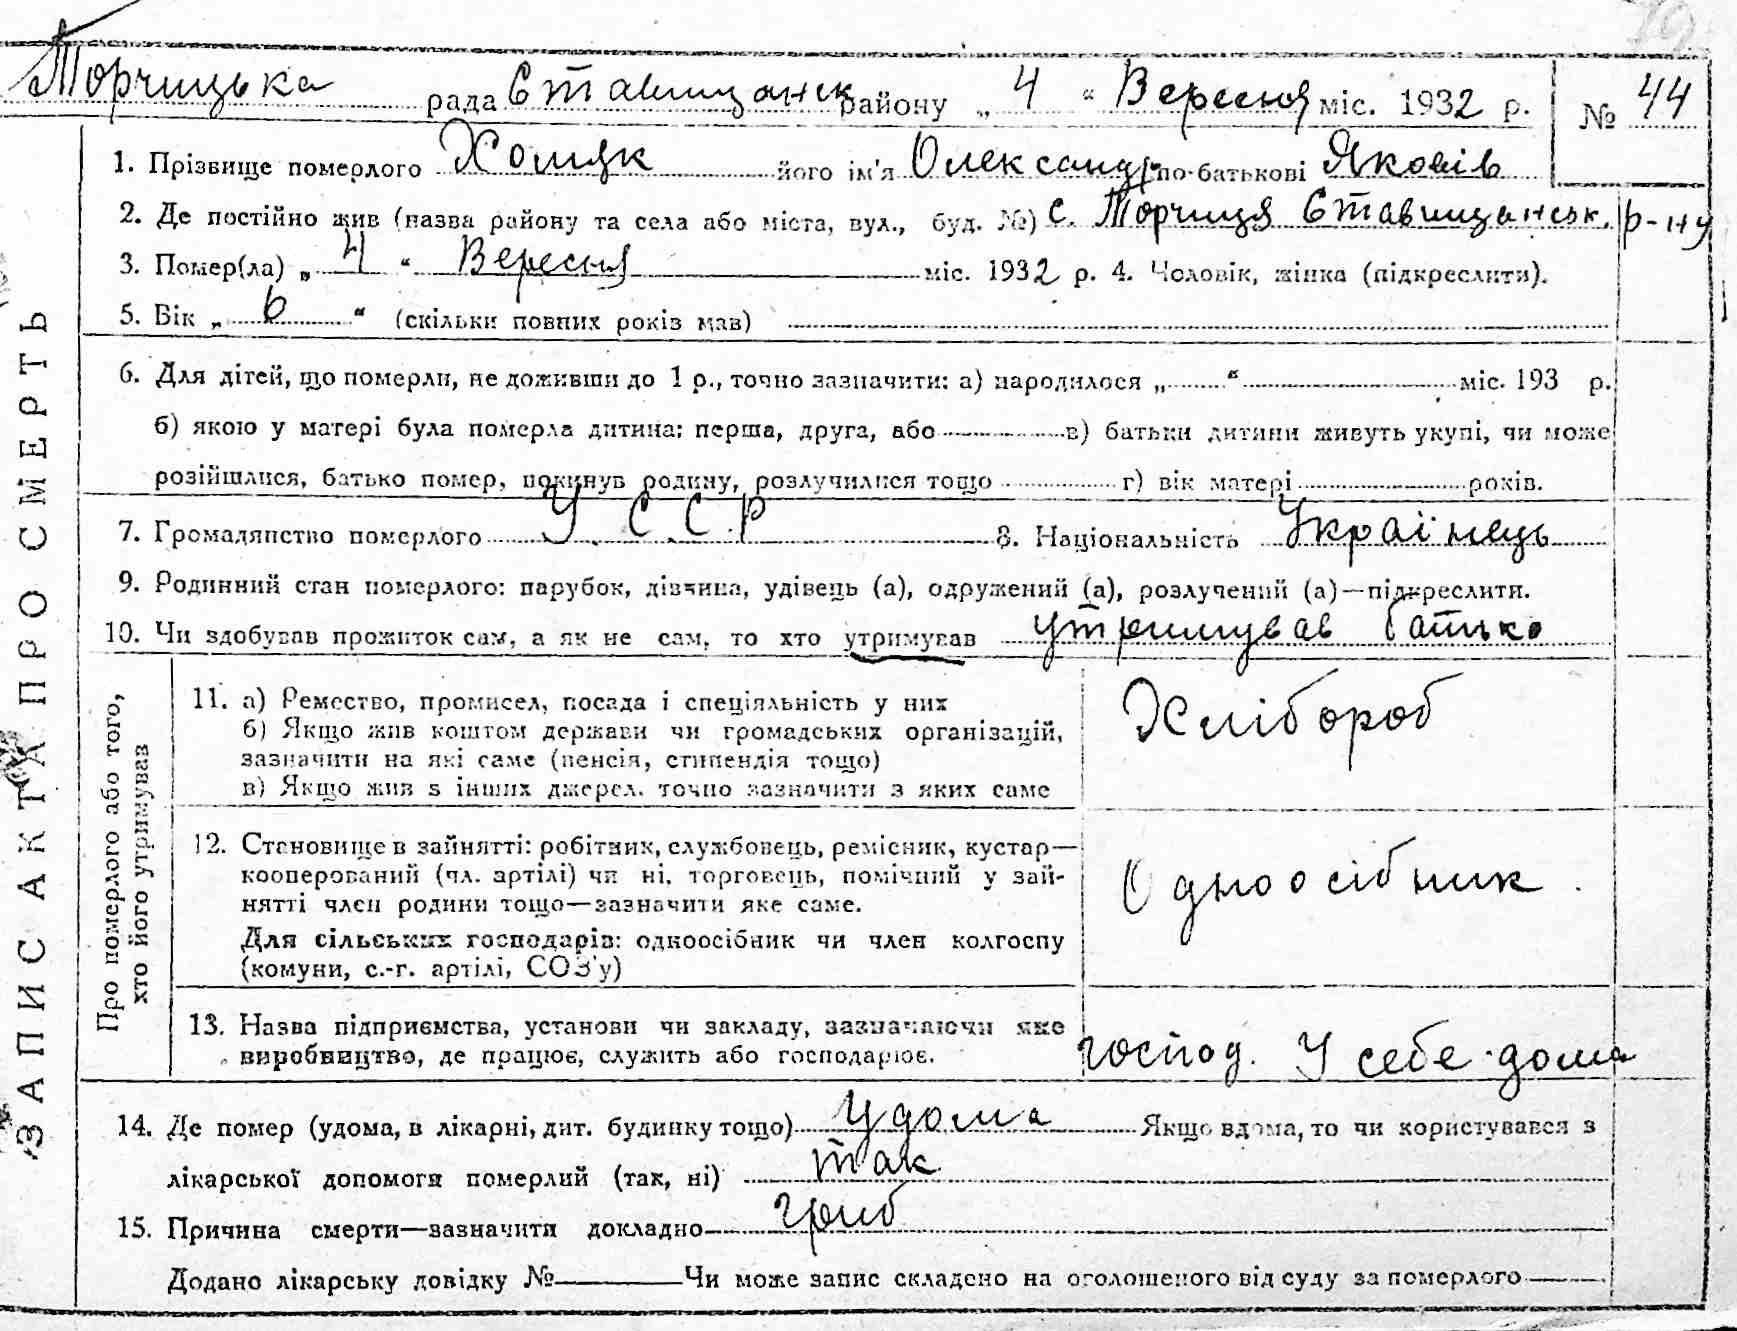 Торчицька рада Ставищанськ району „ 4 “ Вересня міс. 1932 р. № 44
1. Прізвище померлого Хомяк його ім'я Олександр по-батькові Яковів
2. Де постійно жив (назва району та села або міста, вул., буд. №) с. Торчиця Ставищанськ. р-ну
3. Помер(ла) „ 4 “ Вересня міс. 1932 р. 4. Чоловік, жінка (підкреслити).
5. Вік „ 6 “ (скільки повних років мав)
6. Для дітей, що померли, не доживши до 1 р., точно зазначити: а) народилося „ “ міс. 193 р.
б) якою у матері була померла дитина: перша, друга, або в) батьки дитини живуть укупі, чи може
розійшлися, батько помер, покинув родину, розлучилися тощо г) вік матері років.
7. Громадянство померлого У. С. С. Р 8. Національність Українець
9. Родинний стан померлого: парубок, дівчина, удівець (а), одружений (а), розлучений (а)—підкреслити.
10. Чи здобував прожиток сам, а як не сам, то хто утримував утримував батько
ЗАПИС АКТА ПРО СМЕРТЬ
Про померлого або того,
хто його утримував
11. а) Ремество, промисел, посада і спеціяльність у них
б) Якщо жив коштом держави чи громадських організацій,
зазначити на які саме (пенсія, стипендія тощо)
в) Якщо жив з інших джерел, точно зазначити з яких саме
Хлібороб
12. Становище в зайнятті: робітник, службовець, ремісник, кустар—
кооперований (чл. артілі) чи ні, торговець, помічний у зай-
нятті член родини тощо—зазначити яке саме.
Для сільських господарів: одноосібник чи член колгоспу
(комуни, с.-г. артілі, СОЗ'у)
Одноосібник.
13. Назва підприємства, установи чи закладу, зазначаючи яке
виробництво, де працює, служить або господарює.
господ. У себе дома
14. Де помер (удома, в лікарні, дит. будинку тощо) Удома Якщо вдома, то чи користувався з
лікарської допомоги померлий (так, ні) так
15. Причина смерти—зазначити докладно гриб
Додано лікарську довідку № Чи може запис складено на оголошеного від суду за померлого